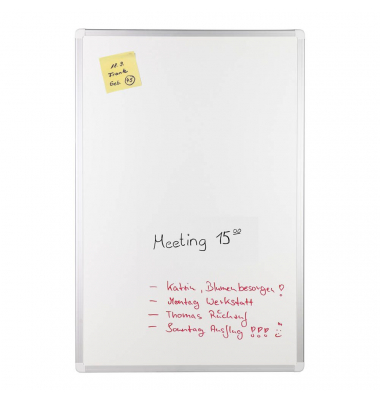 11.3.
Frank
Geb. 45
Meeting 15⁰⁰
– Katrin, Blumen besorgen!
– Montag Werkstatt
– Thomas Rückruf
– Sonntag Ausflug !!!